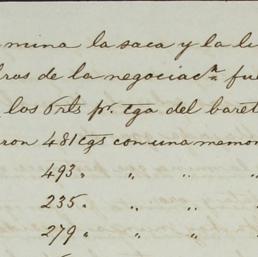 mina la saca y la li
bros de la negociacn fue
los 6 rls pr. cga del baret
ron 481 cgs con una memor
493 " " "
235 " " "
279 " " "